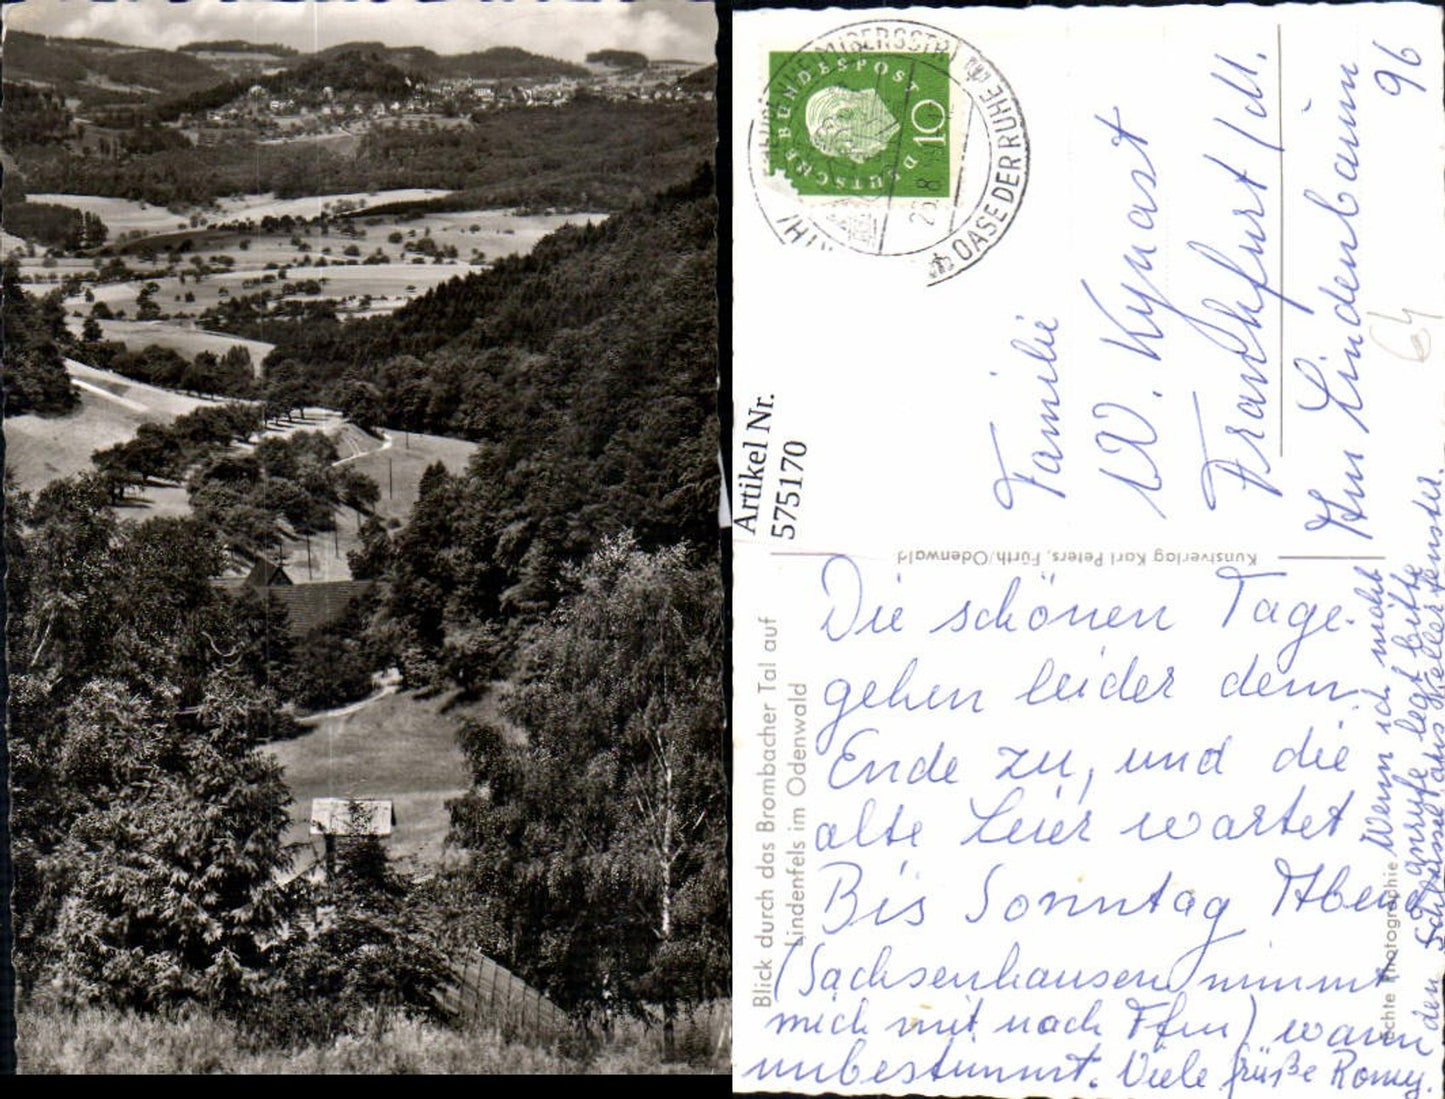 DEUTSCHE BUNDESPOST
10
OASE DER RUHE
Artikel Nr.
575170
Familie
W. Kynast
Frankfurt/M.
Am Lindenbaum
96
64
Kunstverlag Karl Peters, Fürth/Odenwald
Blick durch das Brombacher Tal auf
Lindenfels im Odenwald
Echte Photographie
Die schönen Tage
gehen leider dem
Ende zu, und die
alte Leier wartet
Bis Sonntag Abend
(Sachsenhausen nimmt
mich mit nach Ffm) wann
unbestimmt. Viele Grüße Romy.
Wenn ich nicht
anrufe legt bitte
den Schlüssel ans Kellerfenster.